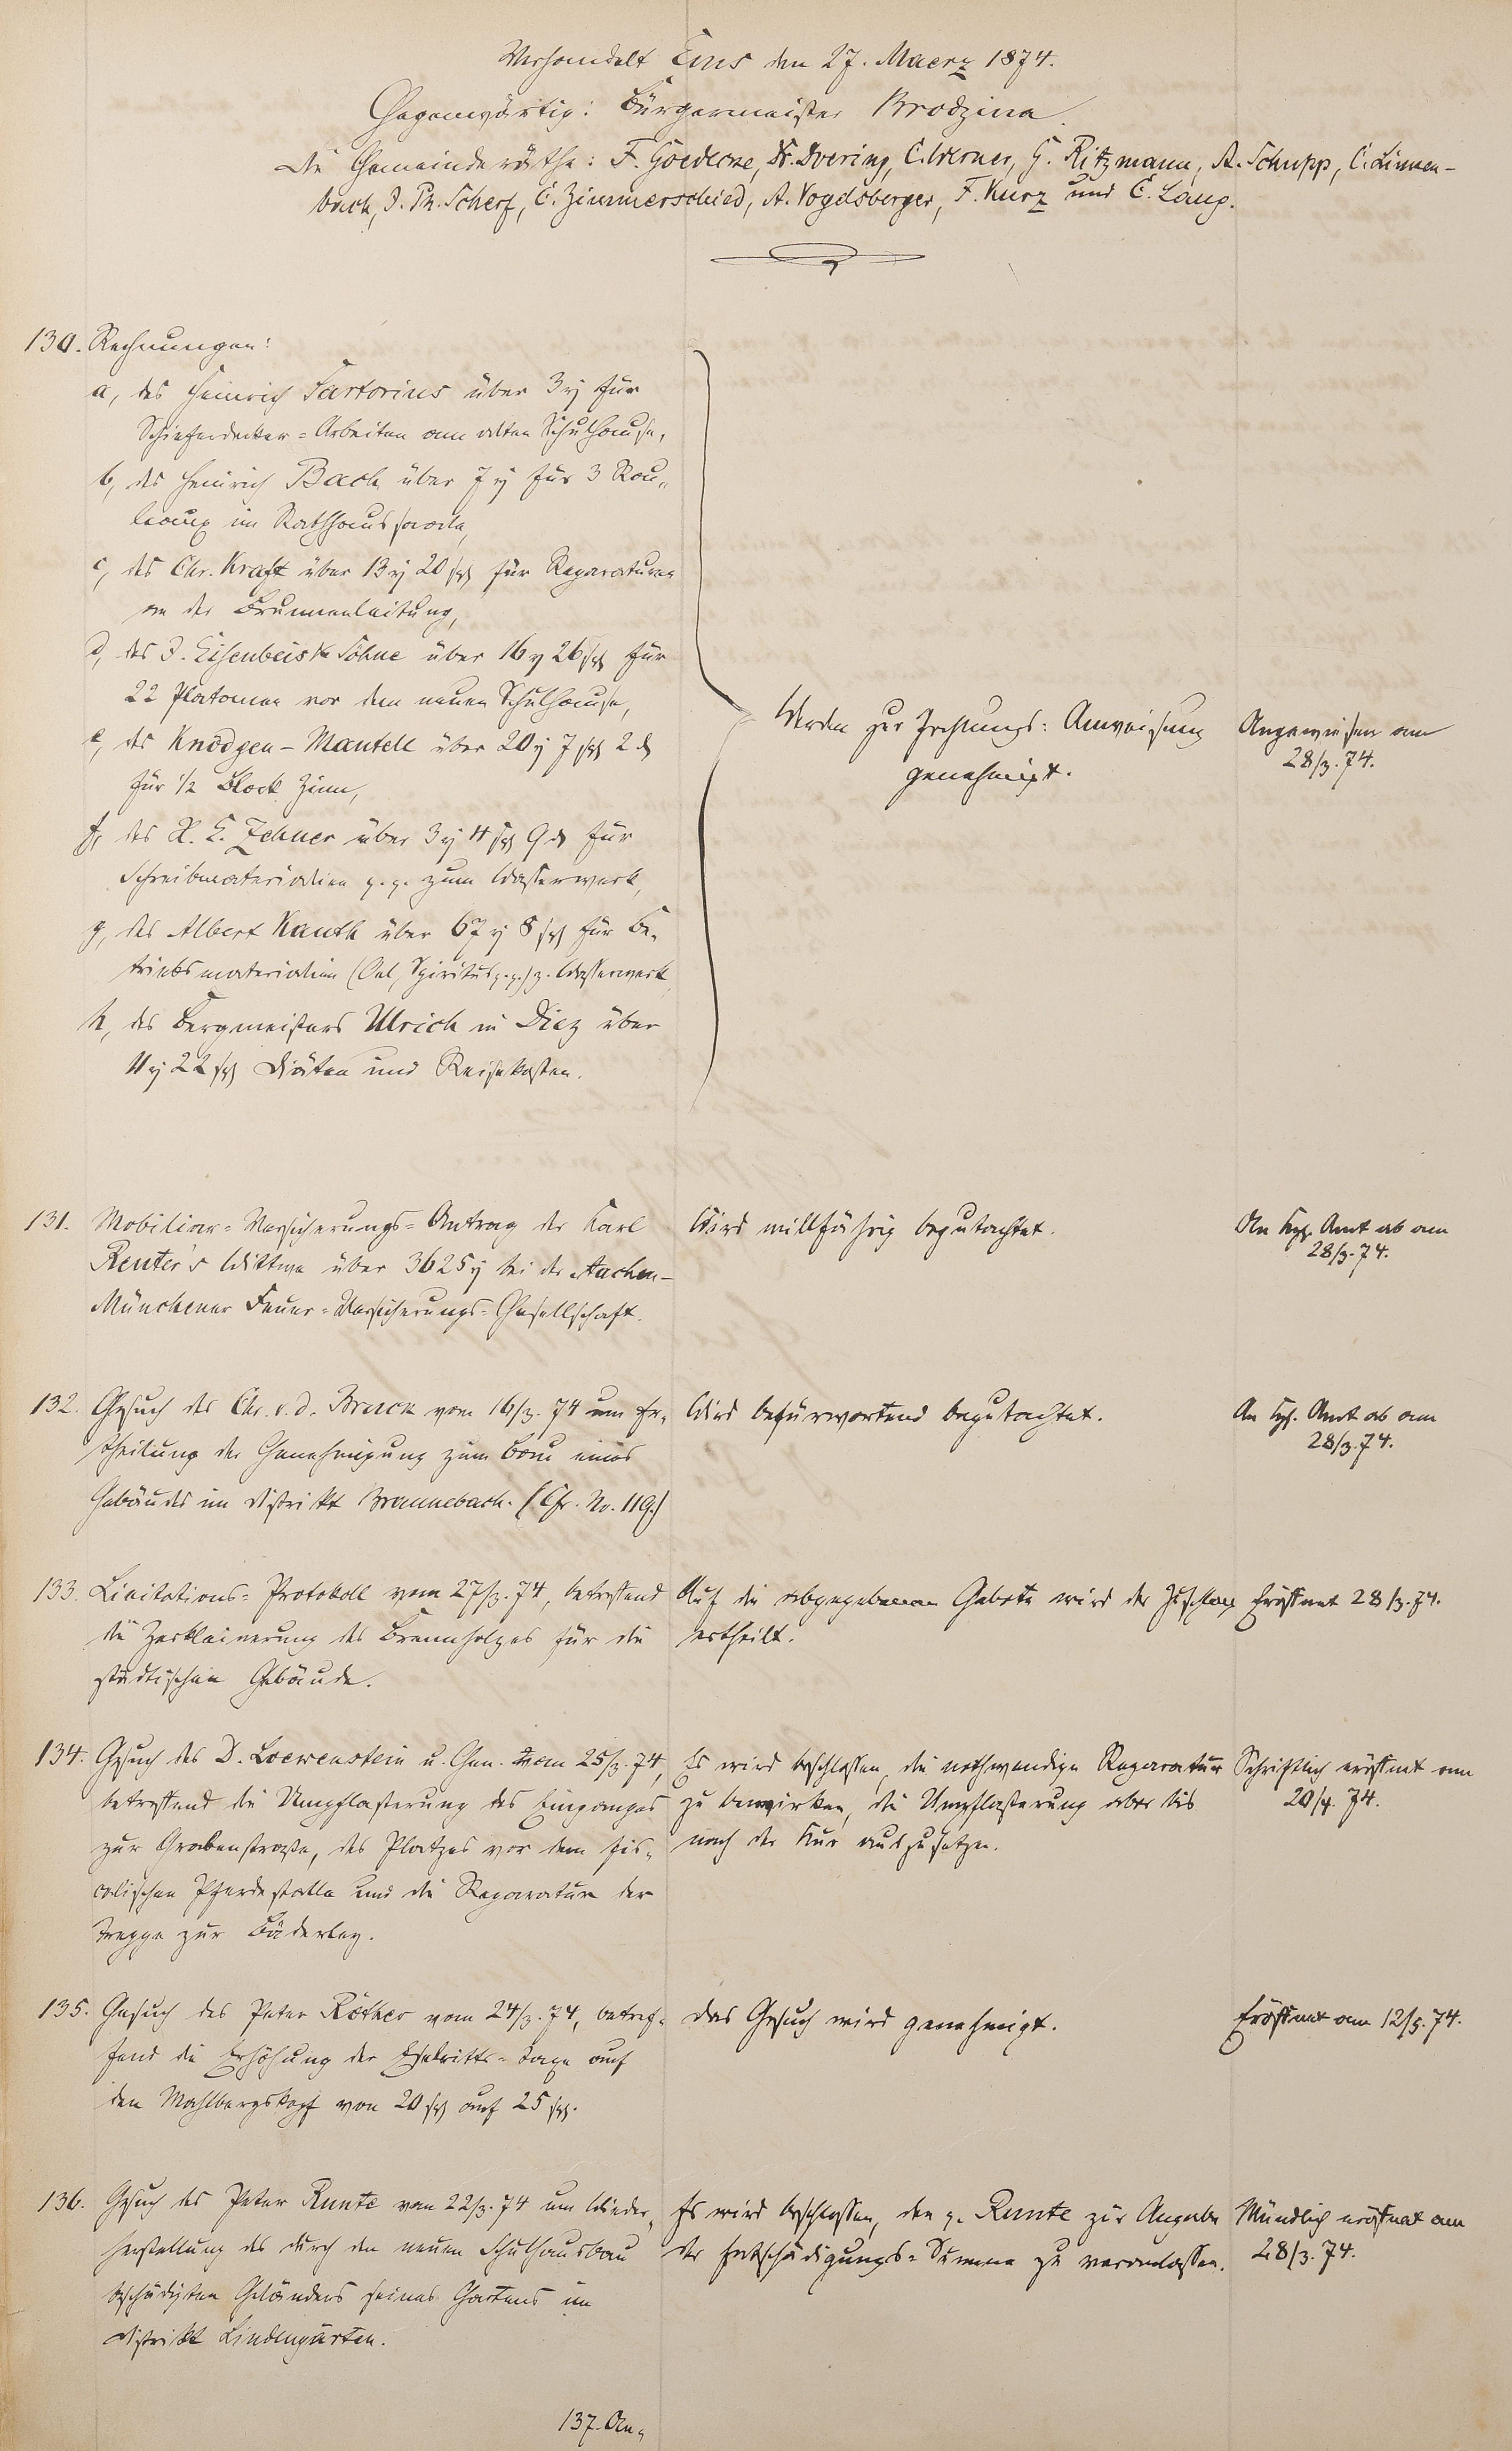 Verhandelt Ems den 27. Maerz 1874.
Gegenwärtig: Bürgermeister Brodzina.
Die Gemeinderäthe: F. Goedecke, Dr. Doering, C. Werner, G. Ritzmann, A. Schupp, C. Linnen-
bach, J. Ph. Scherf, C. Zimmerschied, A. Vogelsberger, F. Kurz und C. Lang.
130. Rechnungen:
a, des Heinrich Sartorius über 3 rf für
Schieferdecker-Arbeiten am alten Schulhause,
b, des Heinrich Bach über 7 rf für 3 Rou-
leaux im Rathhaussaale,
c, des Chr. Kraft über 13 rf 20 sgr für Reparaturen
an der Brunnenleitung,
d, des J. Eisenbeis & Söhne über 16 rf 26 sgr für
22 Platanen vor dem neuen Schulhause,
e, des Knödgen-Mantell über 20 rf 7 sgr 2 d
für 1/2 Block Zinn,
f, des H. C. Zehner über 3 rf 4 sgr 9 d für
Schreibmaterialien p.p. zum Wasserwerk,
g, des Albert Kauth über 67 rf 8 sgr für Be-
triebsmaterialien (Oel, Spiritus p.p.) z. Wasserwerk,
h, des Bergmeisters Ulrich in Diez über
11 rf 22 sgr Diäten und Reisekosten.
Werden zur Zahlungs-Anweisung
genehmigt.
Angewiesen am
28/3. 74.
131. Mobiliar-Versicherungs-Antrag der Karl
Reuter's Wittwe über 3625 rf bei der Aachen-
Münchener Feuer-Versicherungs-Gesellschaft.
Wird willfährig begutachtet.
An Kgl. Amt ab am
28/3. 74.
132. Gesuch des Chr. v. d. Bruck vom 16/3. 74 um Er-
theilung der Genehmigung zum Bau eines
Gebäudes im Distrikt Braunebach. (Cfr. No. 119.)
Wird befürwortend begutachtet.
An Kgl. Amt ab am
28/3. 74.
133. Licitations-Protokoll vom 27/3. 74, betreffend
die Zerkleinerung des Brennholzes für die
städtischen Gebäude.
Auf die abgegebenen Gebote wird der Zuschlag
ertheilt.
Eröffnet 28/3. 74.
134. Gesuch des D. Loewenstein u. Gen. vom 25/3. 74,
betreffend die Umpflasterung des Einganges
zur Grabenstraße, des Platzes vor dem fis-
calischen Pferdestalle und die Reparatur der
Treppe zur Bäderley.
Es wird beschlossen, die nothwendige Reparatur
zu bewirken, die Umpflasterung aber bis
nach der Kur auszusetzen.
Schriftlich eröffnet am
20/4. 74.
135. Gesuch des Peter Röther vom 24/3. 74, betref-
fend die Erhöhung der Eselritts-Taxe auf
den Mahlbergskopf von 20 sgr auf 25 sgr.
Das Gesuch wird genehmigt.
Eröffnet am 12/5. 74.
136. Gesuch des Peter Runte vom 22/3. 74 um Wieder-
herstellung des durch den neuen Schulhausbau
beschädigten Geländers seines Gartens im
Distrikt Lindengärten.
Es wird beschlossen, den p. Runte zur Angabe
der Entschädigungs-Summe zu veranlassen.
Mündlich eröffnet am
28/3. 74.
137. An-